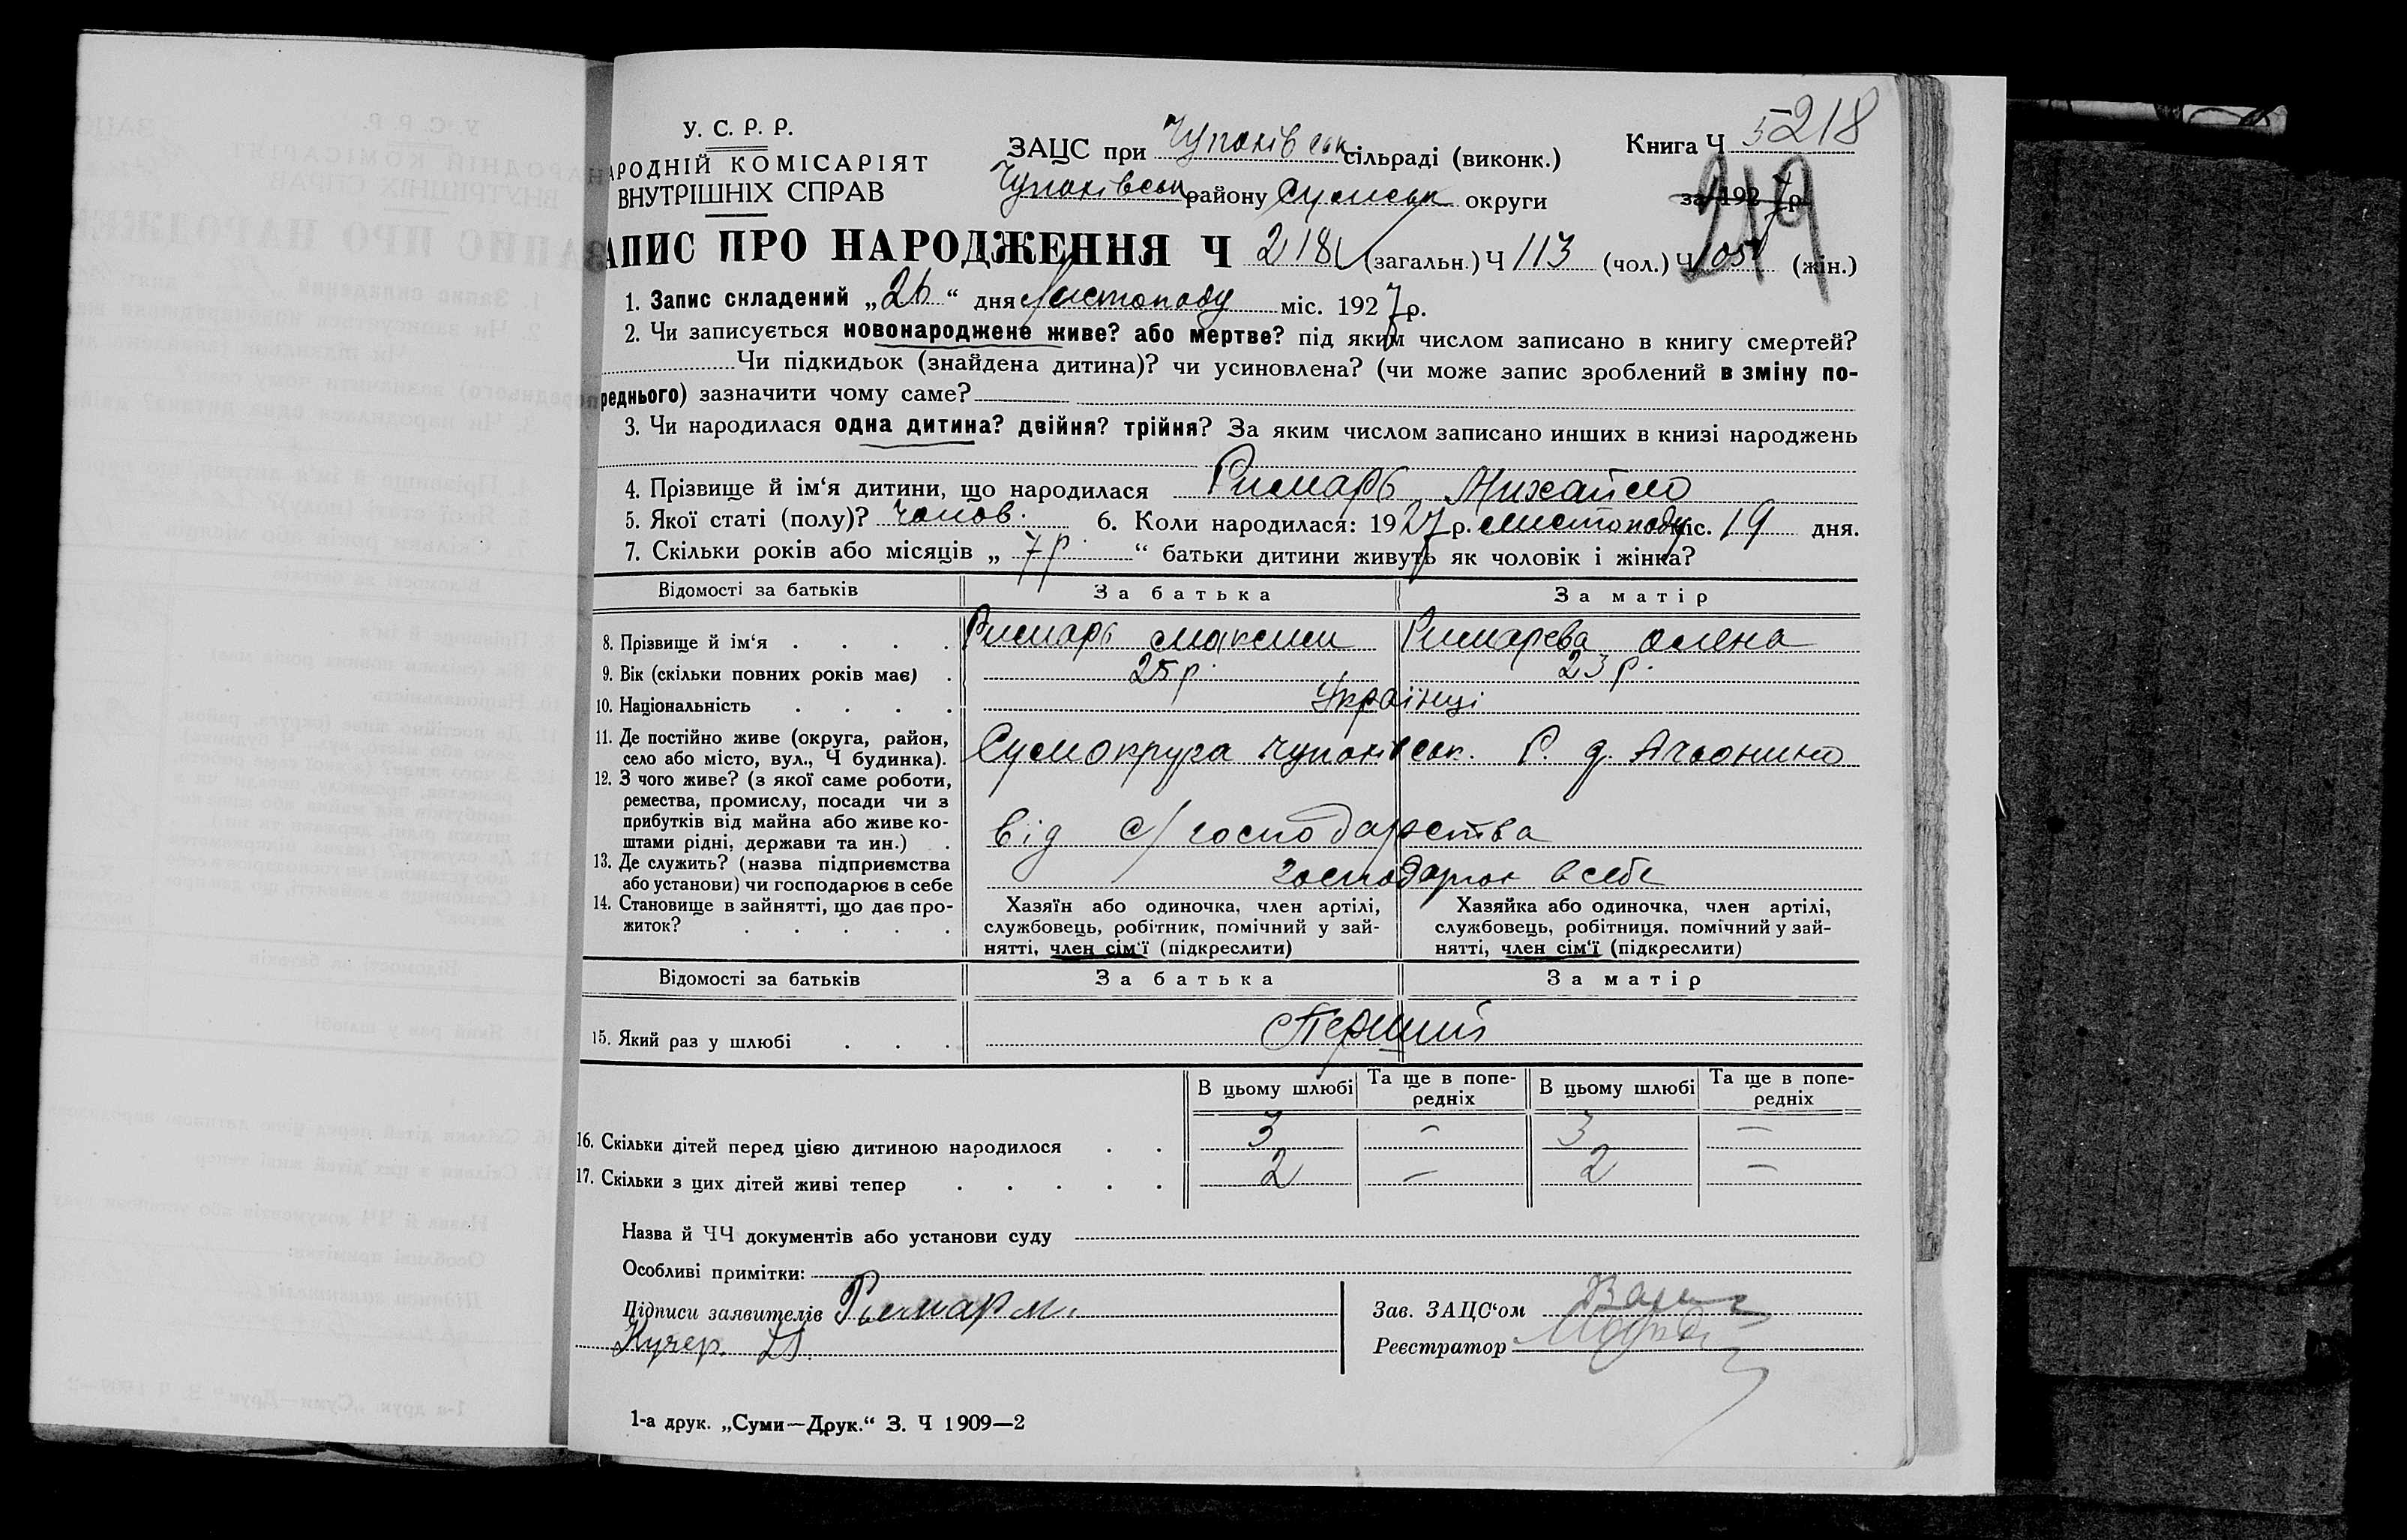 5 218
У. С. Р. Р.
ЗАЦС при Чупахівськ сільраді (виконк.)
Книга Ч 5
АРОДНІЙ КОМІСАРІЯТ
ВНУТРІШНІХ СПРАВ
Чупахівськ району Сумськ округи
за 1927 р.
219
АПИС ПРО НАРОДЖЕННЯ Ч 218 (загальн.) Ч 113 (чол.) Ч 105 (жін.)
1. Запис складений „26“ дня Листопаду міс. 1927 р.
2. Чи записується новонароджене живе? або мертве? під яким числом записано в книгу смертей?
Чи підкидьок (знайдена дитина)? чи усиновлена? (чи може запис зроблений в зміну по-
реднього) зазначити чому саме?
3. Чи народилася одна дитина? двійня? трійня? За яким числом записано инших в книзі народжень
4. Прізвище й ім‘я дитини, що народилася Римарь Михайло
5. Якої статі (полу)? чолов. 6. Коли народилася: 1927 р. листопаду міс. 19 дня.
7. Скільки років або місяців „ 7 р “ батьки дитини живуть як чоловік і жінка?
Відомості за батьків За батька За матір
8. Прізвище й ім‘я . . . . Римарь Максим Римарева Олена
9. Вік (скільки повних років має) . 25 р. 23 р.
10. Національність . . . . Українці
11. Де постійно живе (округа, район,
село або місто, вул., Ч будинка). Сумокруга Чупахівськ. Р. д.
12. З чого живе? (з якої саме роботи,
ремества, промислу, посади чи з
прибутків від майна або живе ко-
штами рідні, держави та ин.) . від с/господарства
13. Де служить? (назва підприємства
або установи) чи господарює в себе господарюк в себе
14. Становище в зайнятті, що дає про-
житок? . . . . .
Хазяїн або одиночка, член артілі,
службовець, робітник, помічний у зай-
нятті, член сім‘ї (підкреслити)
Хазяйка або одиночка, член артілі,
службовець, робітниця, помічний у зай-
нятті, член сім‘ї (підкреслити)
Відомості за батьків За батька За матір
15. Який раз у шлюбі . . . Перший
В цьому шлюбі Та ще в попе-редніх В цьому шлюбі Та ще в попе-редніх
16. Скільки дітей перед цією дитиною народилося . . 3 – 3 –
17. Скільки з цих дітей живі тепер . . . . . 2 – 2 –
Назва й ЧЧ документів або установи суду
Особливі примітки:
Підписи заявителів Римар М.
Кучер.
Зав. ЗАЦС‘ом
Реєстратор
1-а друк. „Суми—Друк.“ З. Ч 1909—2